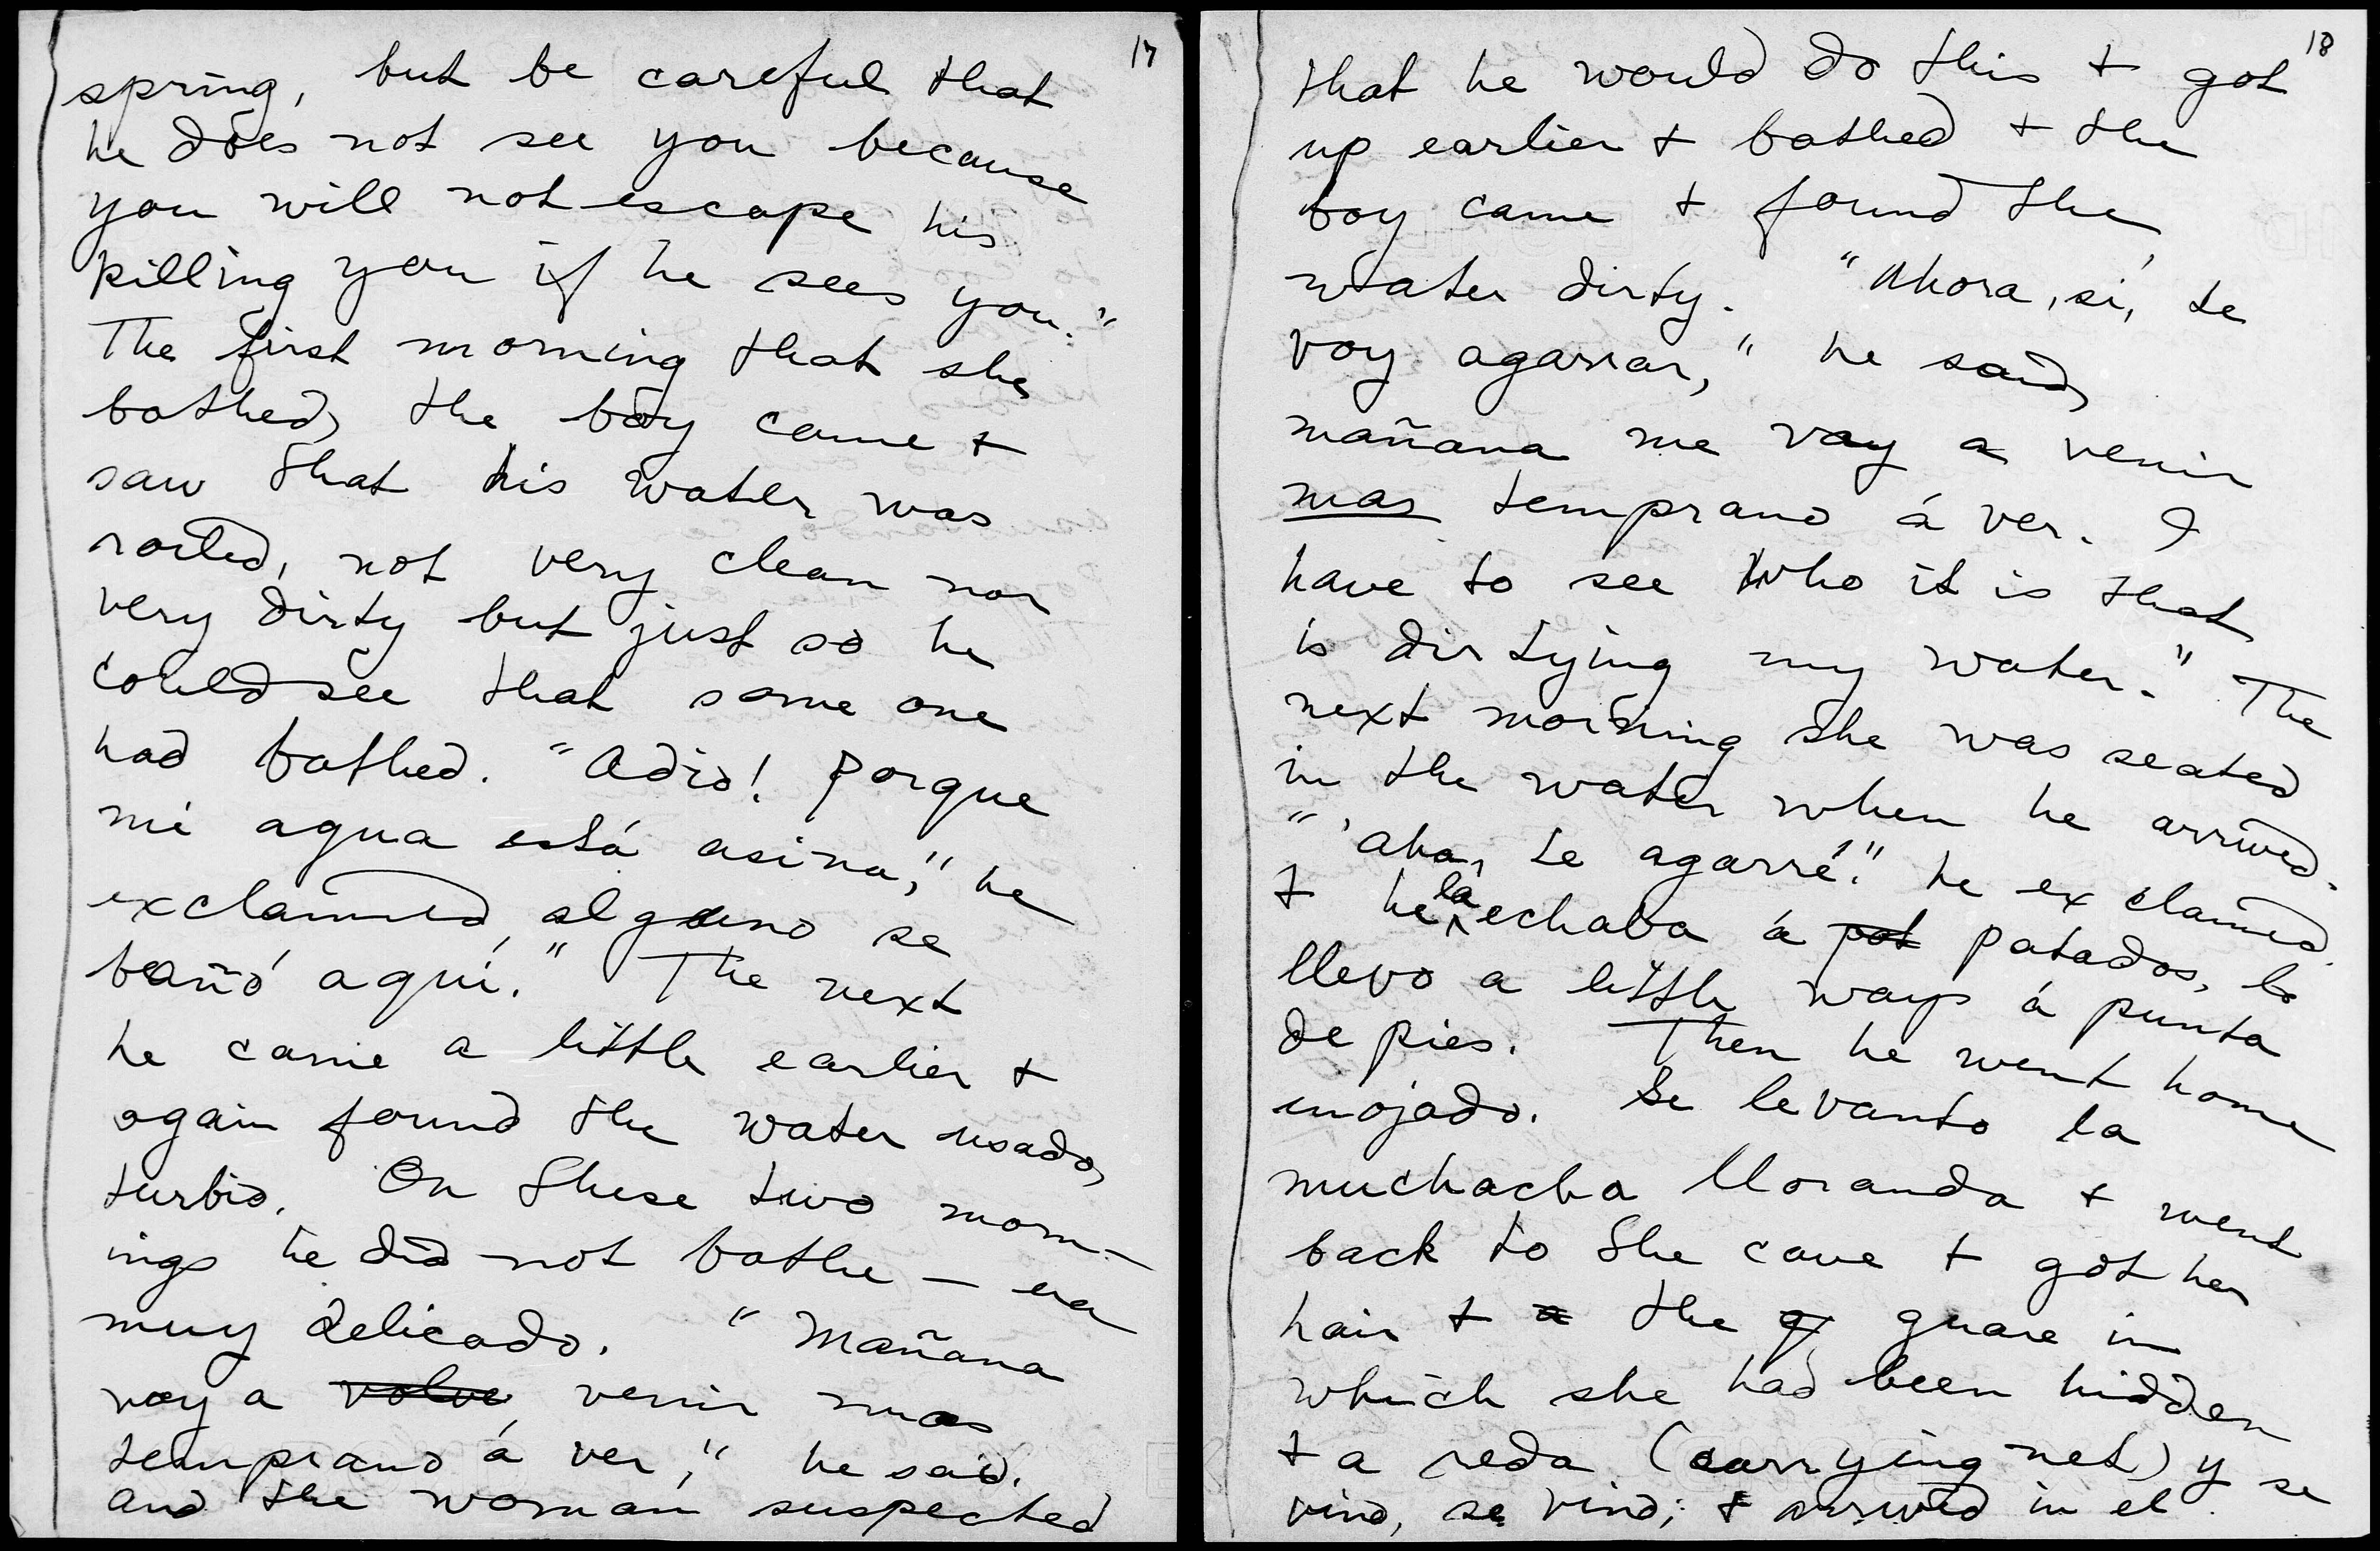 17
spring, but be careful that
he does not see you because
you will not escape his
killing you if he sees you."
The first morning that she
bathed, the boy came +
saw that his water was
roiled, not very clean nor
very dirty but just so he
could see that some one
had bathed. "Adio! Porque
mi agua está asina," he
exclaimed, alguno se
bañó aquí." The next
he came a little earlier +
again found the water usado,
turbio. On these two morn-
ings he did not bathe — era
muy delicado. "Mañana
voy a volve venir mas
temprano á ver," he said.
and the woman suspected
18
that he would do this + got
up earlier + bathed + the
boy came + found the
water dirty. "Ahora, sí, te
voy agarrar," he said,
mañana me voy a venir
mas temprano á ver. I
have to see who it is that
is dirtying my water." The
next morning she was seated
in the water when he arrived.
"Aha, te agarré!" he exclaimed.
+ he la echaba á pat patados, la
llevo a little ways á punta
de pies. Then he went home
enojado. Se levanto la
muchacha lloranda + went
back to the cave + got her
hair + a the g guare in
which she had been hidden
+ a reda (carrying net) y se
vino, se vino; + arrived in el